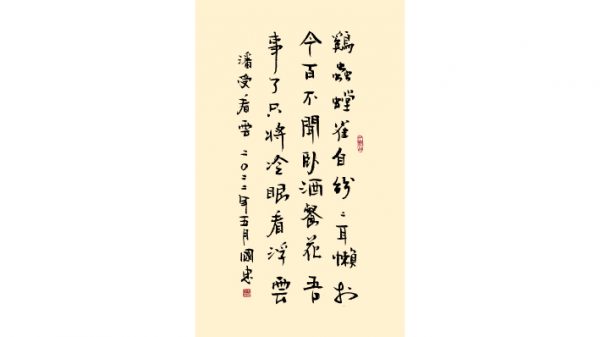 鷄蟲螳雀自紛〻耳懶於
今百不聞臥酒餐花吾
事了只將冷眼看浮雲
潘受看雲 二〇二二年五月 國忠